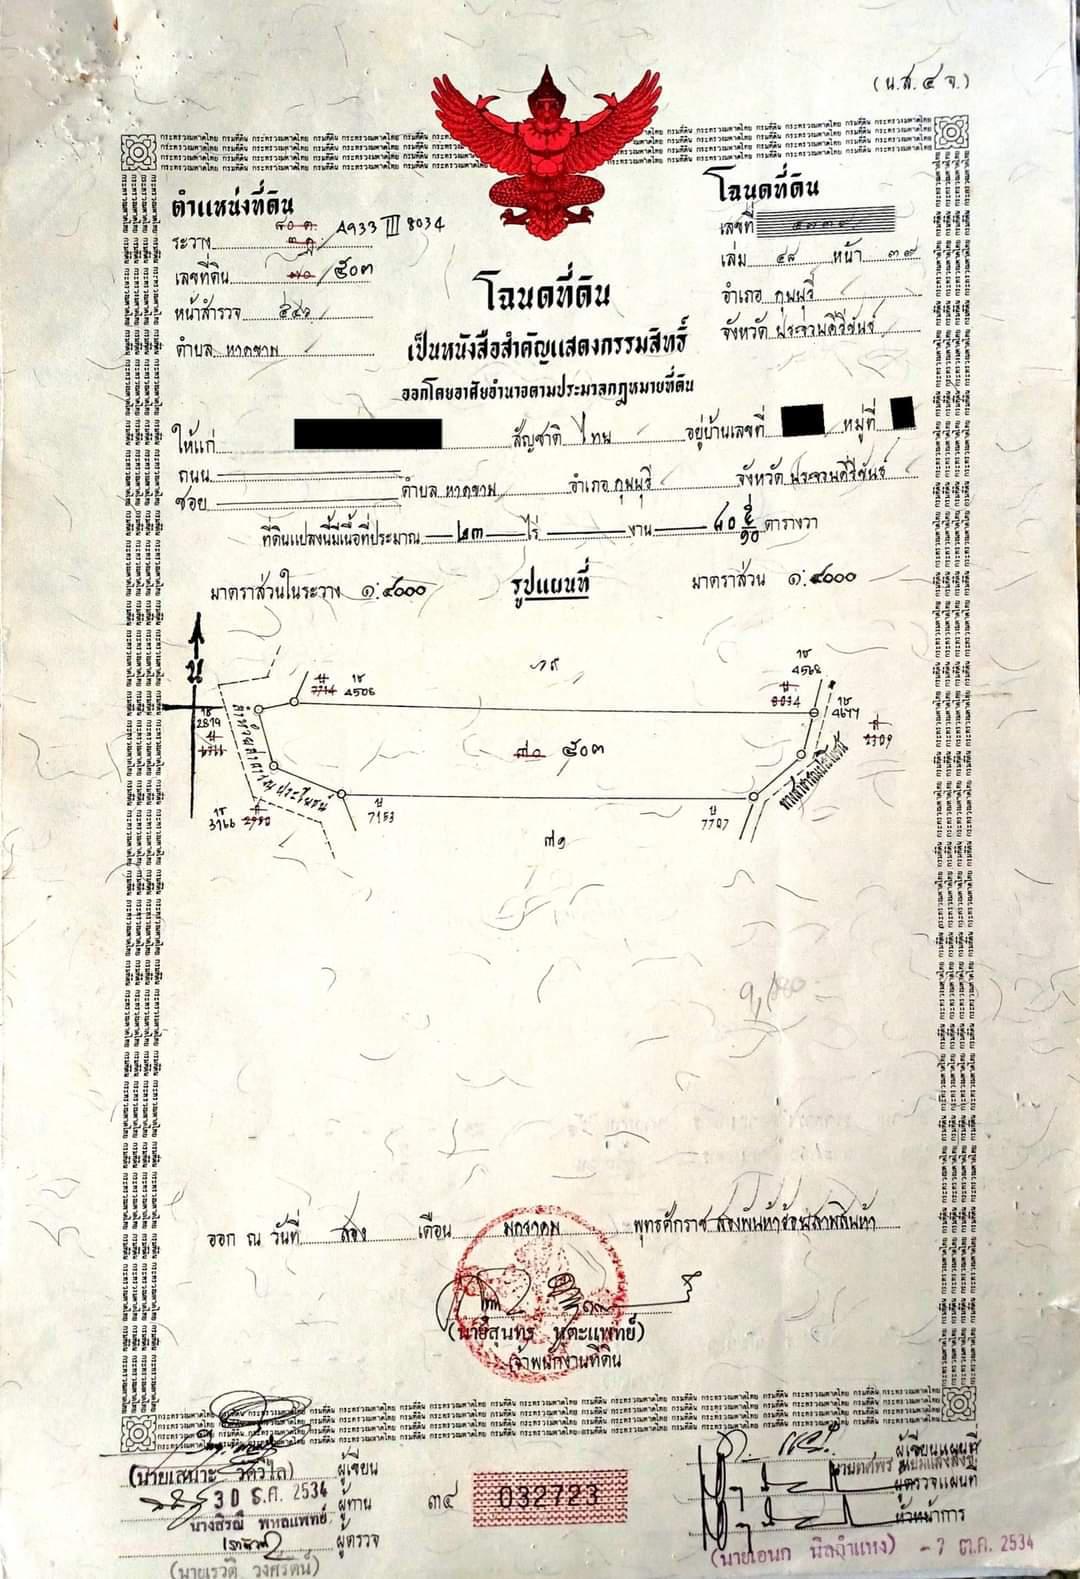 (น.ส.๔ จ.)
ตำแหน่งที่ดิน
ระวาง 4933 III 8034
เลขที่ดิน ๗๐ / ๕๐๓
หน้าสำรวจ
ตำบล หาดขาม
โฉนดที่ดิน
เลขที่
เล่ม ๔๘ หน้า ๓๙
อำเภอ กุยบุรี
จังหวัด ประจวบคีรีขันธ์
โฉนดที่ดิน
เป็นหนังสือสำคัญแสดงกรรมสิทธิ์
ออกโดยอาศัยอำนาจตามประมวลกฎหมายที่ดิน
ให้แก่ สัญชาติ ไทย อยู่บ้านเลขที่ หมู่ที่
ถนน
ซอย ตำบล หาดขาม อำเภอ กุยบุรี จังหวัด ประจวบคีรีขันธ์
ที่ดินแปลงนี้มีเนื้อที่ประมาณ ๒๓ ไร่ งาน ๘๐ ตารางวา
มาตราส่วนในระวาง ๑:๔๐๐๐ รูปแผนที่ มาตราส่วน ๑:๔๐๐๐
น
บ 7714 ๗๙ 4568
4506 บ 8034
2819 4677
๗๐ ๕๐๓ 2309
ลำห้วยสาธารณประโยชน์ ทางสาธารณประโยชน์
3166 2980 บ 7153 บ 7707
๗๑
ออก ณ วันที่ สอง เดือน มกราคม พุทธศักราช สองพันห้าร้อยสามสิบห้า
(นายสุนทร หุตะแพทย์)
เจ้าพนักงานที่ดิน
ผู้เขียน
30 ธ.ค. 2534 ผู้ทาน
นางสิรณี พหลแพทย์ ผู้ตรวจ
(นายเรวดี วงศ์รัตน์)
๓๔ 032723
ผู้เขียนแผนที่
ผู้ตรวจแผนที่
หัวหน้าการ
(นายเอนก นิลกำแหง) - 7 ต.ค. 2534